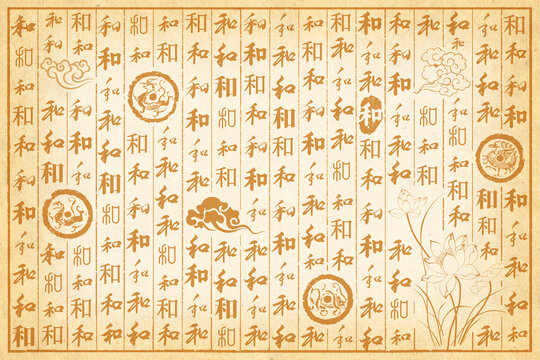 和和和和和和和和和和
和和和和和和和和和和
和和和和和和
和和和和
和和和和和和和和和
和和和和和和和和和和和
和和和和和和和和和和
和和和和和和和和和
和和和和和和和和和和和和
和和和和和和和和和和和
和和和和和和和和和和
和和和和和和和和和和
和和和和和和和和和和
和和和和和和和和和
和和和和和和和和和和和
和和和和和和和和和和
和和和和和和和和和
和和和和和和和和和和和